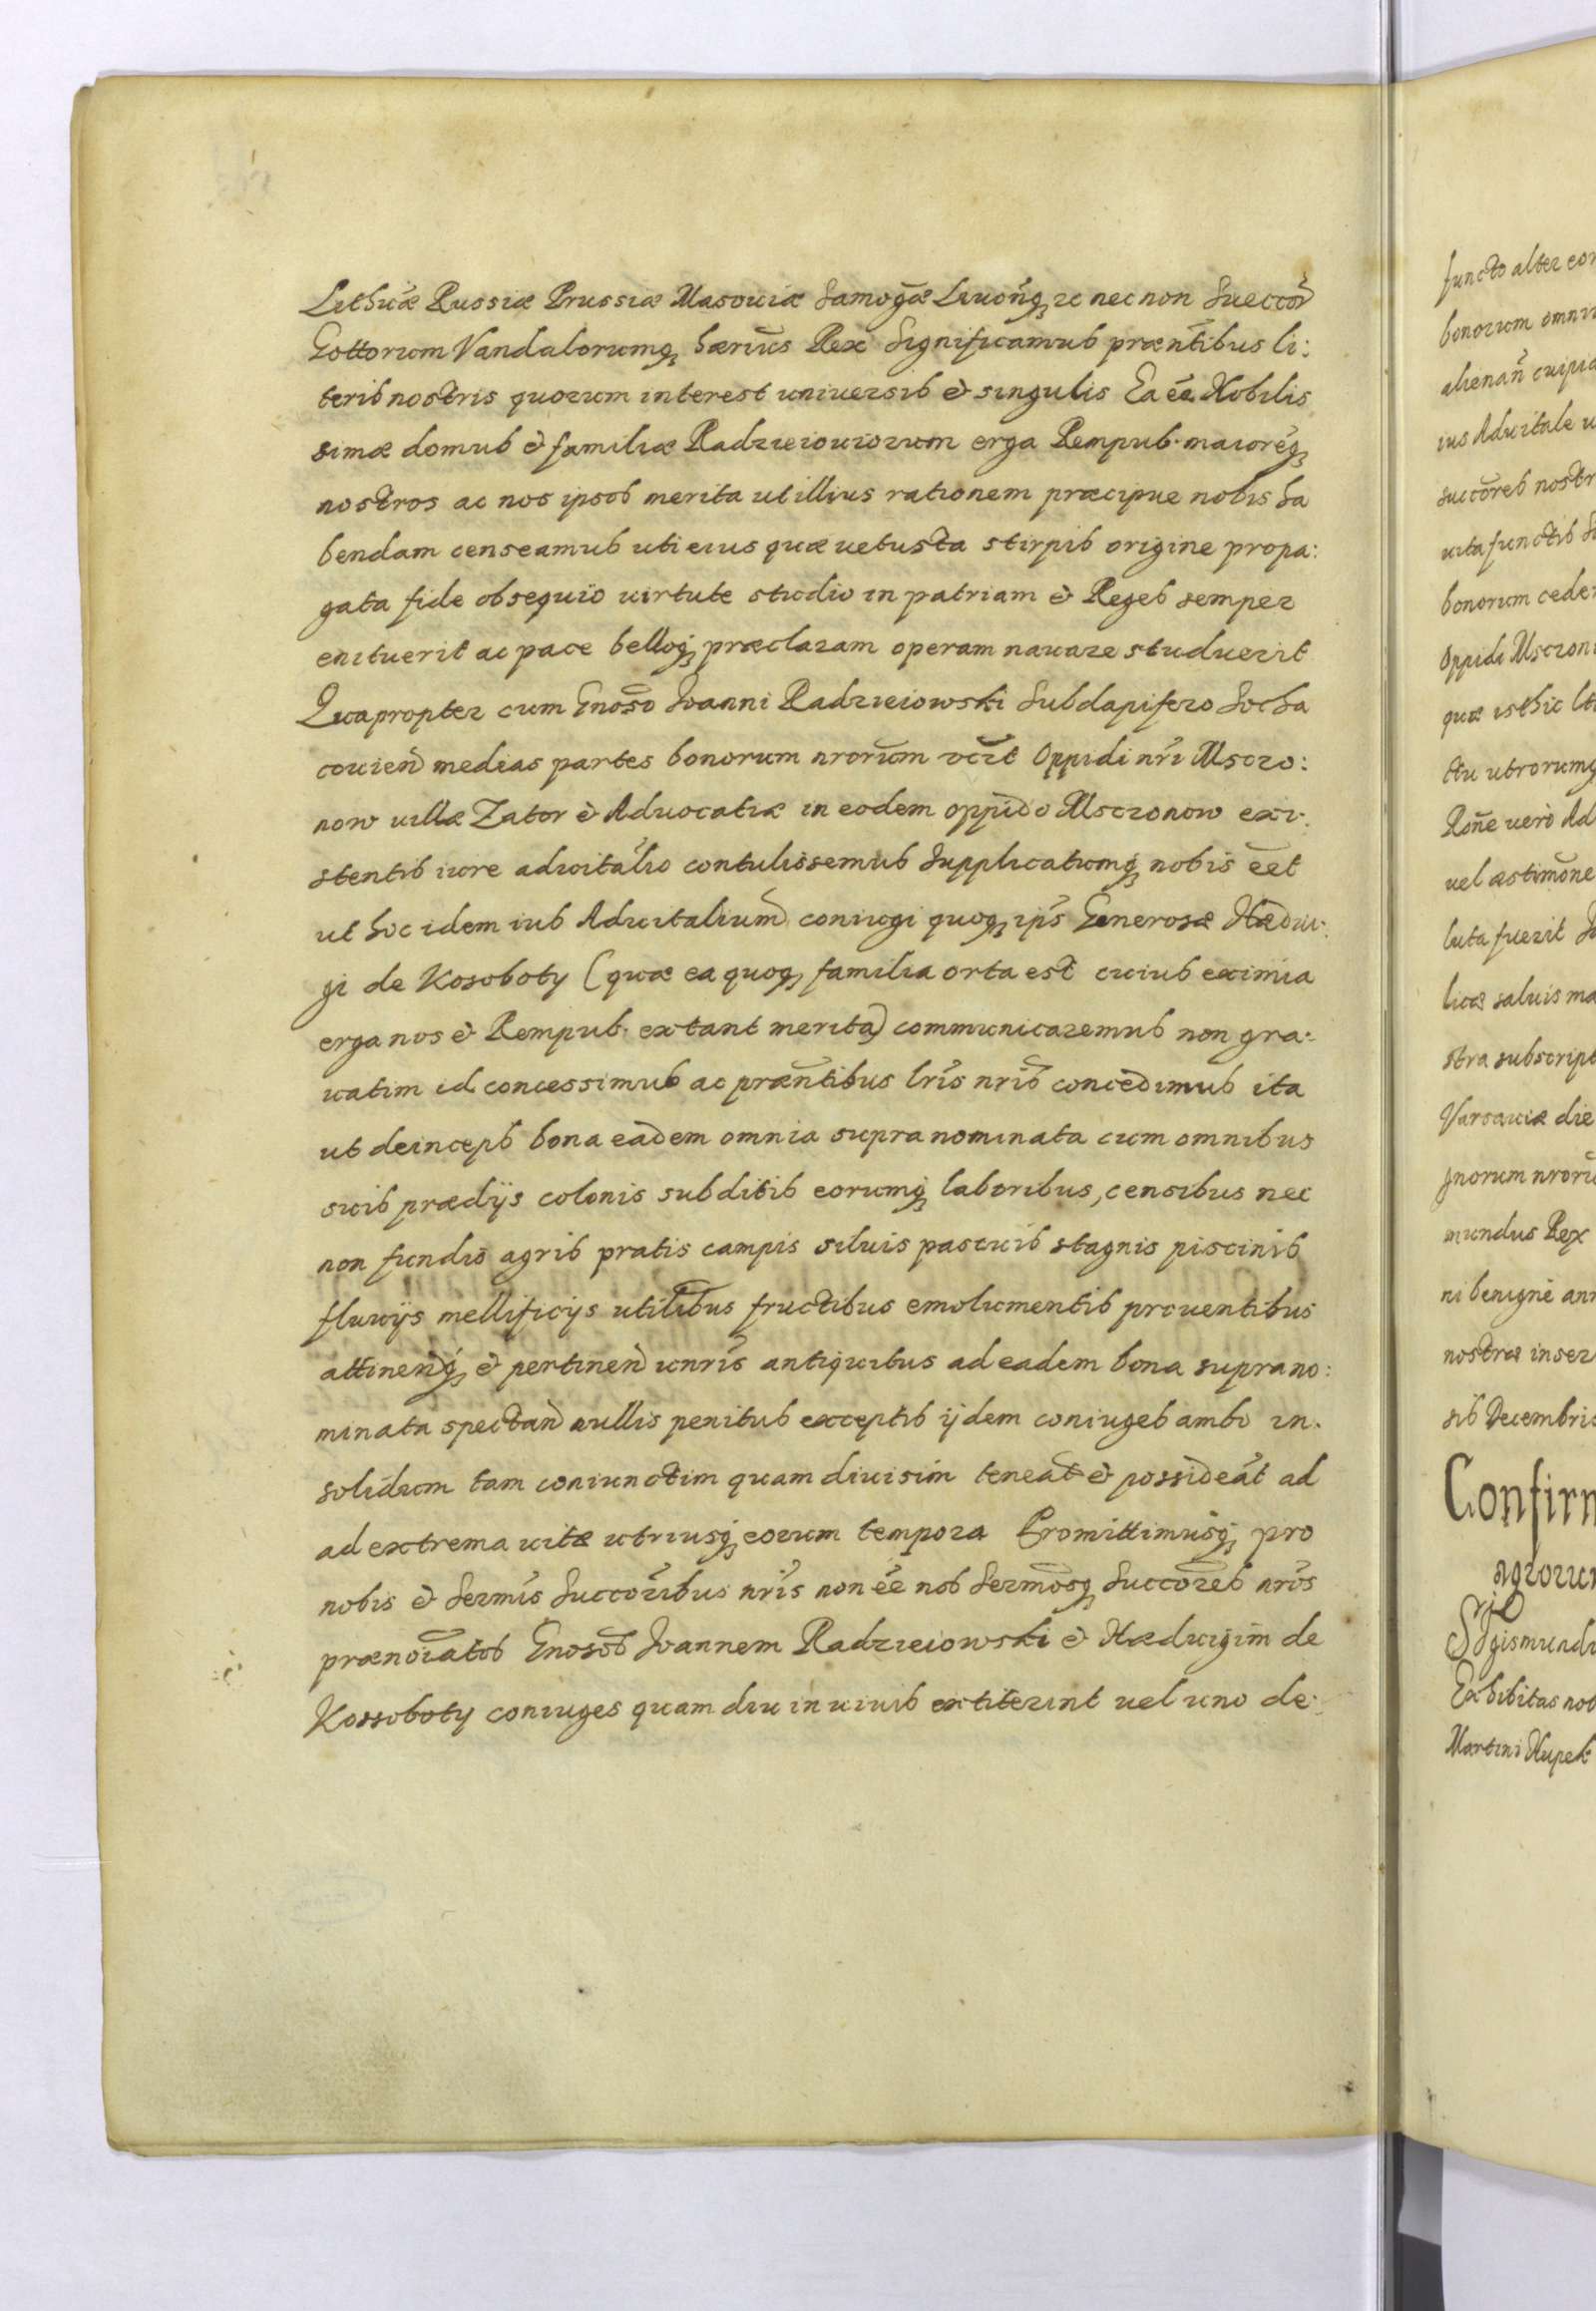 Lithuæ Russiæ Prussiæ Masouiæ Samogæ Liuonq₃ ec nec non Sueccor
Gottorum Vandalorumq₃ hærius Rex Significamus præntibus li:
teris nostris quorum interest uniuersis & singulis Ea ée Nobilis
simæ domus & familiæ Radzieiouiorum erga Rempub. maioreq₃
nostros ac nos ipsos merita ut illius rationem præcipue nobis ha
bendam censeamus uti eius quæ uetusta stirpis origine propa:
gata fide obsequio uirtute studio in patriam & Reges semper
enituerit ac pace belloq₃ præclaram operam nauare studuerit
Quapropter cum Gnoso Ioanni Radzieiowski Subdapifero Socha
couien medias partes bonorum nrorum vczt Oppidi nri Msczo:
now uillæ Zator & Aduocatiæ in eodem oppido Msczonow exi:
stentis iure aduitalio contulissemus Supplicatumq₃ nobis eet
ut hoc idem ius Aduitalium coniugi quoq₃ ips Generosæ Hædui:
gi de Kosoboty (quæ ea quoq₃ familia orta est cuius eximia
erga nos & Rempub. extant merita) communicaremus non gra:
uatim id concessimus ac præntibus lris nris concedimus ita
ut deinceps bona eadem omnia supra nominata cum omnibus
suis prædijs colonis subditis eorumq₃ laboribus, censibus nec
non fundis agris pratis campis siluis pascuis stagnis piscinis
fluuijs mellificijs utilibus fructibus emolumentis prouentibus
attinenq₃ & pertinen unris antiquitus ad eadem bona supra no:
minata spectan nullis penitus exceptis ijdem coniuges ambo in.
solidum tam coniunctim quam diuisim teneat & possideat ad
ad extrema uitæ utriusq₃ eorum tempora Promittimusq₃ pro
nobis & Sermis Succoribus nris non ée nos Sermosq₃ Succores nros
prænoiatos Gnosos Ioannem Radzieiowski & Hæduigim de
Kossoboty coniuges quam diu in uiuis extiterint uel uno de:
functo alter
bonorum
alienan
ius Aduitale
succores nostr
uita functis
bonorum
Oppidi
quæ isthic
ctu utrorumq
Rone uero
uel æstimone
luta fuerit
licæ saluis
stra subscript
Varsauiæ die
gnorum
mundus Rex
ni benigne
nostræ inser
sis Decembris
Confirm
agrorum
Sigismundu
Exhibitas
Martini